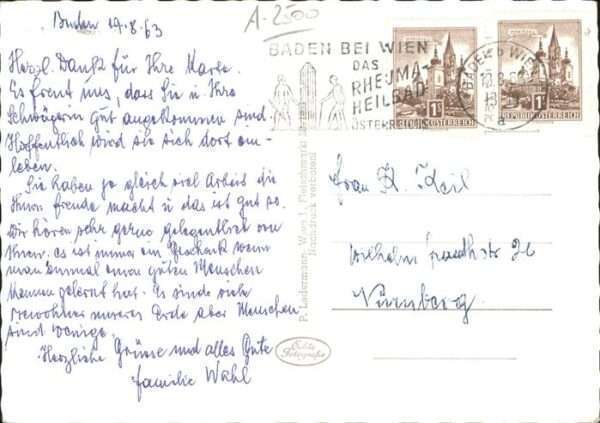 Baden 19.8.63
A-2500
Herzl. Dank für Ihre Karte.
Es freut uns, dass Sie u. Ihre
Schwägerin gut angekommen sind
Hoffentlich wird sie sich dort ein-
leben.
Sie haben ja gleich viel Arbeit die
Ihnen freude macht u das ist gut so.
Wir hören sehr gerne gelegentlich von
Ihnen. es ist immer ein Geschenk wenn
man einmal einen guten Menschen
kennen gelernt hat. Es sind viele
Bewohner unserer Erde aber Menschen
sind wenige.
Herzliche Grüsse und alles Gute
Familie Wahl
BADEN BEI WIEN
DAS
RHEUMA-
HEILBAD
ÖSTERREICHS
BADEN b. WIEN
1S
REPUBLIK ÖSTERREICH
1S
REPUBLIK ÖSTERREICH
P. Ledermann, Wien I, Fleischmarkt
Nachdruck verboten!
Echte
Fotografie
Frau K. Keil
Nürnberg